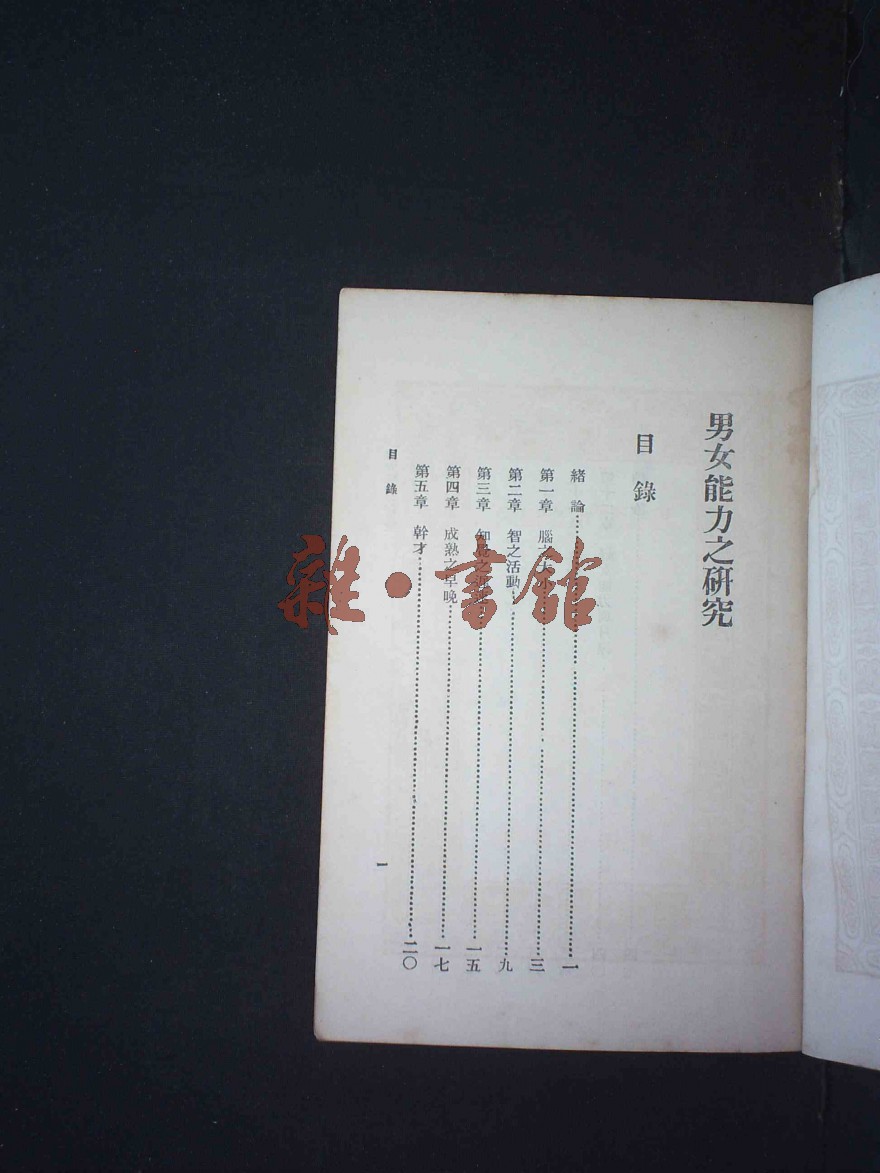 男女能力之研究
目錄
緒論 一
第一章 腦之大小 三
第二章 智之活動 九
第三章 知覺之 一五
第四章 成熟之早晚 一七
第五章 幹才 二〇
目錄
一
雜·書館